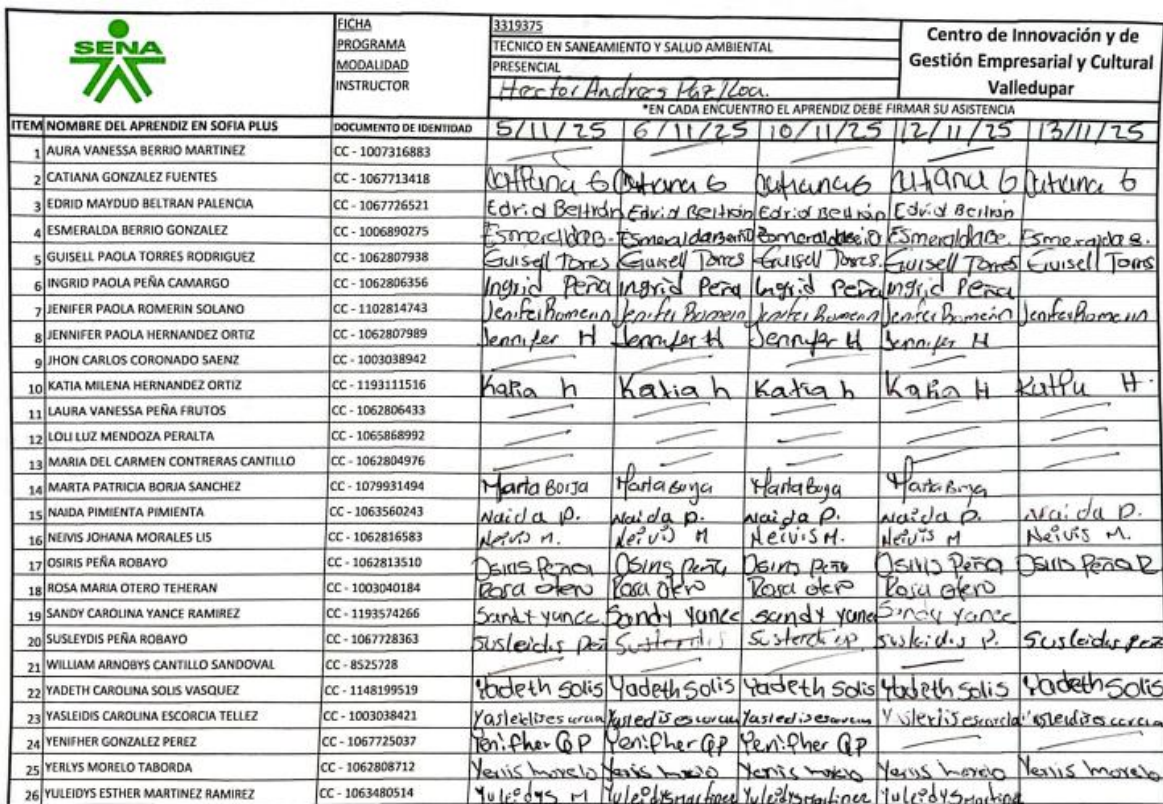 SENA
FICHA 3319375
PROGRAMA TECNICO EN SANEAMIENTO Y SALUD AMBIENTAL
MODALIDAD PRESENCIAL
INSTRUCTOR Hector Andres
Centro de Innovación y de
Gestión Empresarial y Cultural
Valledupar
*EN CADA ENCUENTRO EL APRENDIZ DEBE FIRMAR SU ASISTENCIA
ITEM NOMBRE DEL APRENDIZ EN SOFIA PLUS DOCUMENTO DE IDENTIDAD 5/11/25 6/11/25 10/11/25 12/11/25 13/11/25
1 AURA VANESSA BERRIO MARTINEZ CC - 1007316883
2 CATIANA GONZALEZ FUENTES CC - 1067713418 Catiana G Catiana G Catiana G Catiana G Catiana G
3 EDRID MAYDUD BELTRAN PALENCIA CC - 1067726521 Edrid Beltrán Edrid Beltrán Edrid Beltrán Edrid Beltrán
4 ESMERALDA BERRIO GONZALEZ CC - 1006890275 Esmeralda B. Esmeralda Berrio Esmeralda Esmeralda Be. Esmeralda B.
5 GUISELL PAOLA TORRES RODRIGUEZ CC - 1062807938 Guisell Torres Guisell Torres Guisell Torres. Guisell Torres Guisell Torres
6 INGRID PAOLA PEÑA CAMARGO CC - 1062806356 Ingrid Peña Ingrid Peña Ingrid Peña Ingrid Peña
7 JENIFER PAOLA ROMERIN SOLANO CC - 1102814743 Jenifer Romerin Jenifer Romerin Jenifer Romerin Jenifer Romerin Jenifer Romerin
8 JENNIFER PAOLA HERNANDEZ ORTIZ CC - 1062807989 Jennifer H Jennifer H Jennifer H Jennifer H
9 JHON CARLOS CORONADO SAENZ CC - 1003038942
10 KATIA MILENA HERNANDEZ ORTIZ CC - 1193111516 Katia h Katia h Katia h Katia H H.
11 LAURA VANESSA PEÑA FRUTOS CC - 1062806433
12 LOLI LUZ MENDOZA PERALTA CC - 1065868992
13 MARIA DEL CARMEN CONTRERAS CANTILLO CC - 1062804976
14 MARTA PATRICIA BORJA SANCHEZ CC - 1079931494 Marta Borja Marta Borja Marta Borja Marta Borja
15 NAIDA PIMIENTA PIMIENTA CC - 1063560243 Naida P. Naida P. Naida P. Naida P. Naida P.
16 NEIVIS JOHANA MORALES LIS CC - 1062816583 Neivis M. Neivis M Neivis M. Neivis M Neivis M.
17 OSIRIS PEÑA ROBAYO CC - 1062813510 Osiris Peña Osiris Peña Osiris Peña Osiris Peña Osiris Peña R
18 ROSA MARIA OTERO TEHERAN CC - 1003040184 Rosa otero Rosa otero Rosa otero Rosa otero
19 SANDY CAROLINA YANCE RAMIREZ CC - 1193574266 Sandy yance Sandy yance sandy yance Sandy yance
20 SUSLEYDIS PEÑA ROBAYO CC - 1067728363 Susleidis Peñ susleidis P. Susleidis
21 WILLIAM ARNOBYS CANTILLO SANDOVAL CC - 8525728
22 YADETH CAROLINA SOLIS VASQUEZ CC - 1148199519 Yadeth Solis Yadeth Solis Yadeth Solis Yadeth Solis Yadeth Solis
23 YASLEIDIS CAROLINA ESCORCIA TELLEZ CC - 1003038421
24 YENIFHER GONZALEZ PEREZ CC - 1067725037 Yenifher GP Yenifher GP Yenifher GP
25 YERLYS MORELO TABORDA CC - 1062808712 Yerlis morelo Yerlis morelo Yerlis morelo Yerlis morelo Yerlis morelo
26 YULEIDYS ESTHER MARTINEZ RAMIREZ CC - 1063480514 Yuleidys M Yuleidys martinez Yuleidys martinez Yuleidys martinez